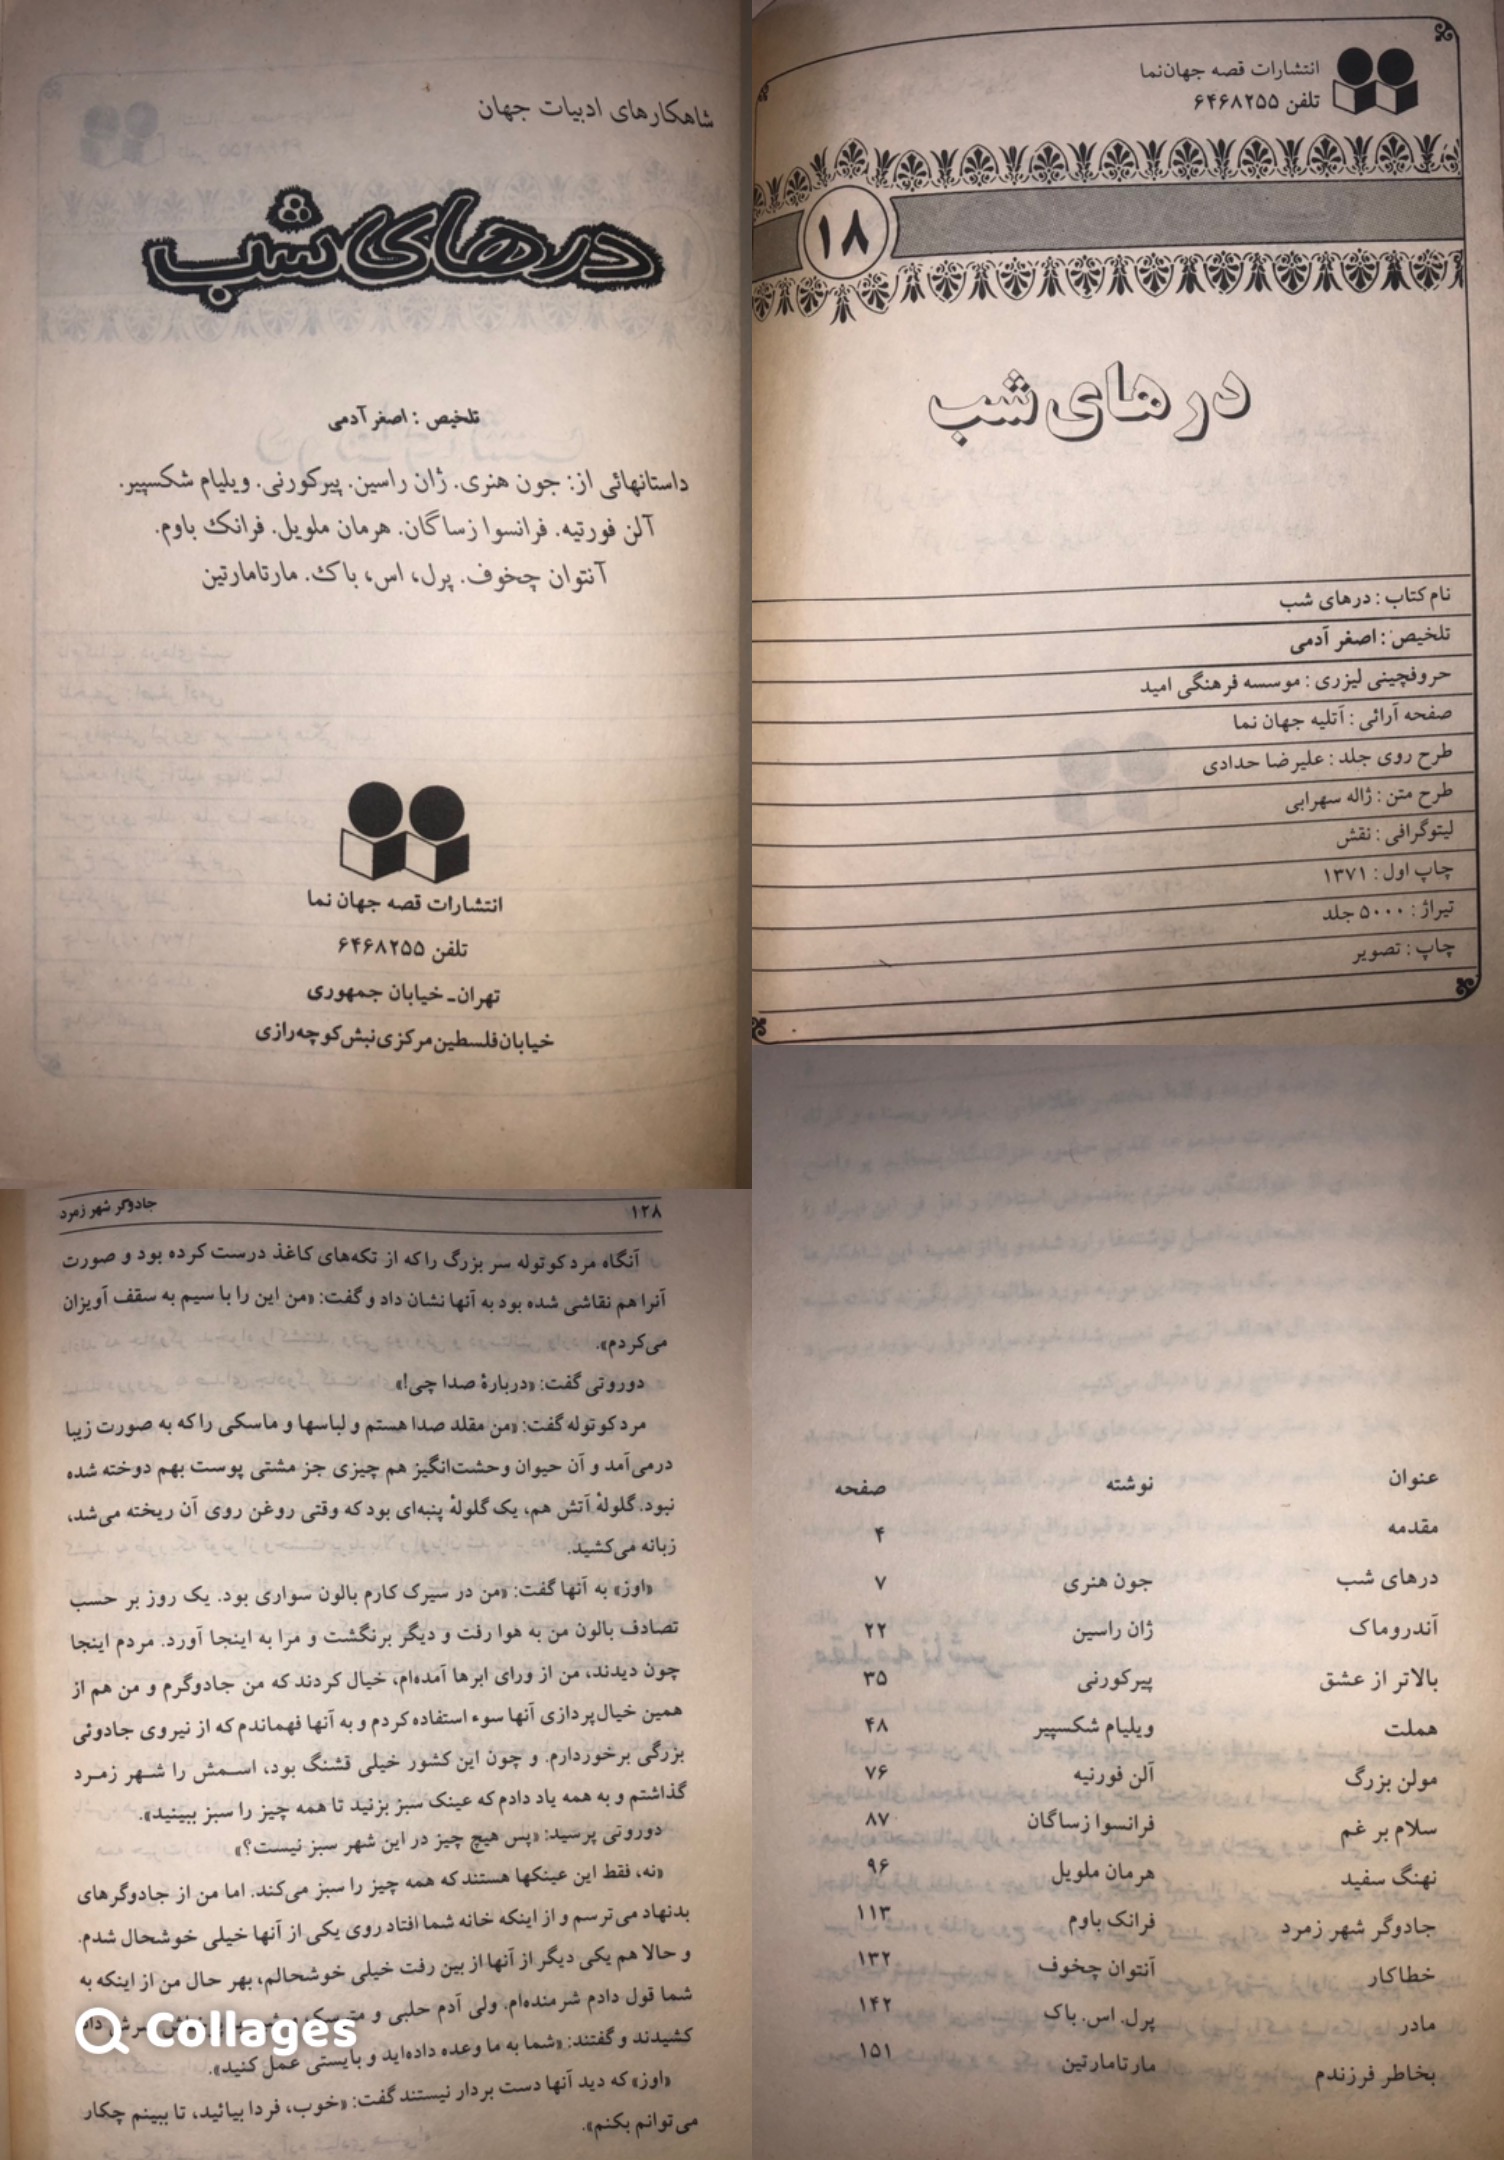 شاهکارهای ادبیات جهان
درهای شب
تلخیص : اصغر آدمی
داستانهائی از: جون هنری. ژان راسین. پیرکورنی. ویلیام شکسپیر.
آلن فورتیه. فرانسوا زساگان. هرمان ملویل. فرانک باوم.
آنتوان چخوف. پرل، اس، باک. مارتامارتین
انتشارات قصه جهان نما
تلفن ۶۴۶۸۲۵۵
تهران ـ خیابان جمهوری
خیابان فلسطین مرکزی نبش کوچه رازی
انتشارات قصه جهان‌نما
تلفن ۶۴۶۸۲۵۵
۱۸
درهای شب
نام کتاب : درهای شب
تلخیص : اصغر آدمی
حروفچینی لیزری : موسسه فرهنگی امید
صفحه آرائی : آتلیه جهان نما
طرح روی جلد : علیرضا حدادی
طرح متن : ژاله سهرابی
لیتوگرافی : نقش
چاپ اول : ۱۳۷۱
تیراژ : ۵۰۰۰ جلد
چاپ : تصویر
۱۲۸ جادوگر شهر زمرد
آنگاه مرد کوتوله سر بزرگ را که از تکه‌های کاغذ درست کرده بود و صورت
آنرا هم نقاشی شده بود به آنها نشان داد و گفت: «من این را با سیم به سقف آویزان
می‌کردم».
دوروتی گفت: «دربارهٔ صدا چی!»
مرد کوتوله گفت: «من مقلد صدا هستم و لباسها و ماسکی را که به صورت زیبا
درمی‌آمد و آن حیوان وحشت‌انگیز هم چیزی جز مشتی پوست بهم دوخته شده
نبود. گلولهٔ آتش هم، یک گلولهٔ پنبه‌ای بود که وقتی روغن روی آن ریخته می‌شد،
زبانه می‌کشید.
«اوز» به آنها گفت: «من در سیرک کارم بالون سواری بود. یک روز بر حسب
تصادف بالون من به هوا رفت و دیگر برنگشت و مرا به اینجا آورد. مردم اینجا
چون دیدند، من از ورای ابرها آمده‌ام، خیال کردند که من جادوگرم و من هم از
همین خیال‌پردازی آنها سوء استفاده کردم و به آنها فهماندم که از نیروی جادوئی
بزرگی برخوردارم. و چون این کشور خیلی قشنگ بود، اسمش را شهر زمرد
گذاشتم و به همه یاد دادم که عینک سبز بزنید تا همه چیز را سبز ببینید».
دوروتی پرسید: «پس هیچ چیز در این شهر سبز نیست؟»
«نه، فقط این عینکها هستند که همه چیز را سبز می‌کند. اما من از جادوگرهای
بدنهاد می‌ترسم و از اینکه خانه شما افتاد روی یکی از آنها خیلی خوشحال شدم.
و حالا هم یکی دیگر از آنها از بین رفت خیلی خوشحالم، بهر حال من از اینکه به
شما قول دادم شرمنده‌ام. ولی آدم حلبی و
کشیدند و گفتند: «شما به ما وعده داده‌اید و بایستی عمل کنید».
«اوز» که دید آنها دست بردار نیستند گفت: «خوب، فردا بیائید، تا ببینم چکار
می‌توانم بکنم».
Collages
عنوان نوشته صفحه
مقدمه ۴
درهای شب جون هنری ۷
آندروماک ژان راسین ۲۲
بالاتر از عشق پیرکورنی ۳۵
هملت ویلیام شکسپیر ۴۸
مولن بزرگ آلن فورنیه ۷۶
سلام بر غم فرانسوا زساگان ۸۷
نهنگ سفید هرمان ملویل ۹۶
جادوگر شهر زمرد فرانک باوم ۱۱۳
خطاکار آنتوان چخوف ۱۳۲
مادر پرل. اس. باک ۱۴۲
بخاطر فرزندم مارتامارتین ۱۵۱